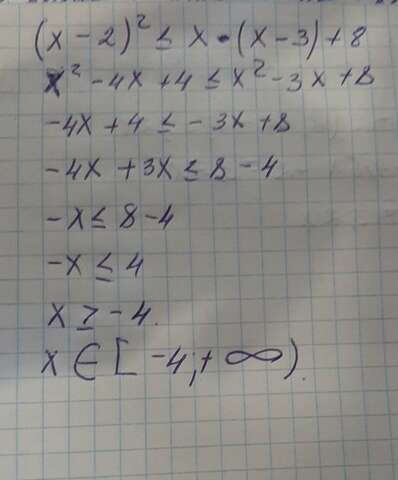 (x - 2)² ≤ x · (x - 3) + 8
x² - 4x + 4 ≤ x² - 3x + 8
-4x + 4 ≤ - 3x + 8
-4x + 3x ≤ 8 - 4
-x ≤ 8 - 4
-x ≤ 4
x ≥ -4.
x ∈ [ -4; + ∞).